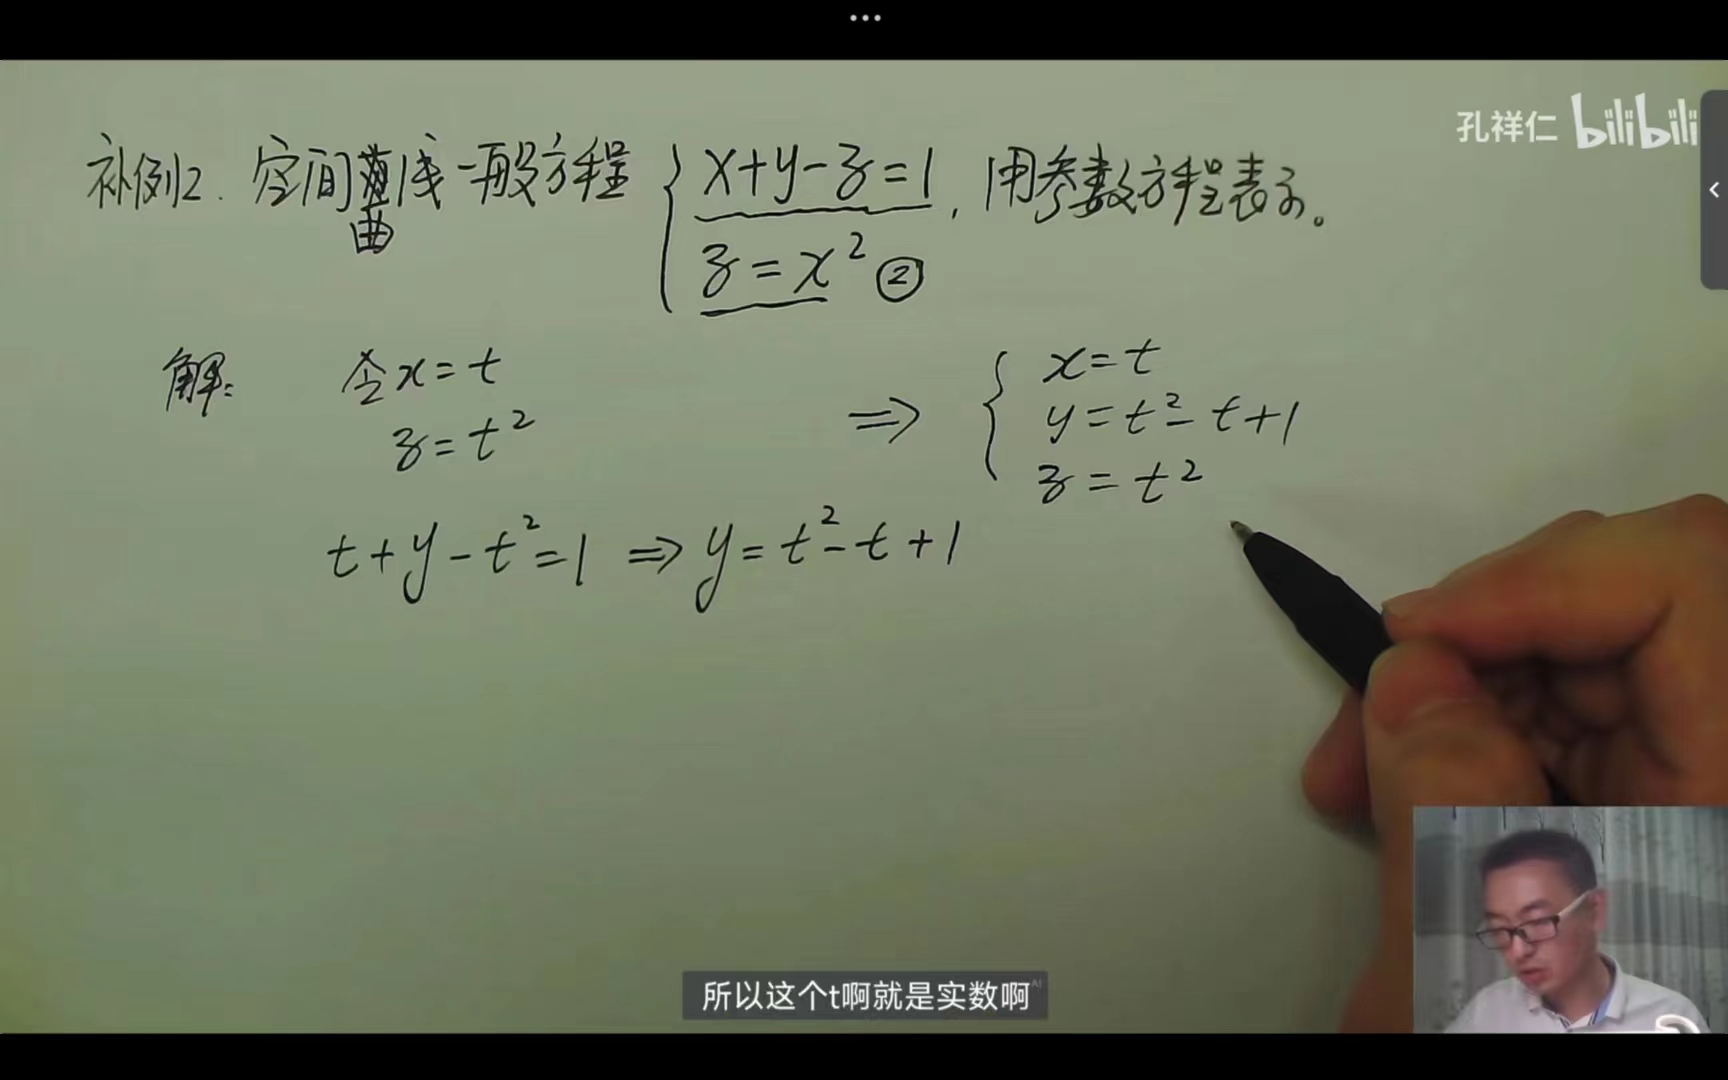 孔祥仁 bilibili
补例2. 空间曲线一般方程 { x+y-z=1, 用参数方程表示。
z=x² ②
解: 令x=t ⇒ { x=t
z=t² y=t²-t+1
z=t²
t+y-t²=1 ⇒ y=t²-t+1
所以这个t啊就是实数啊 AI